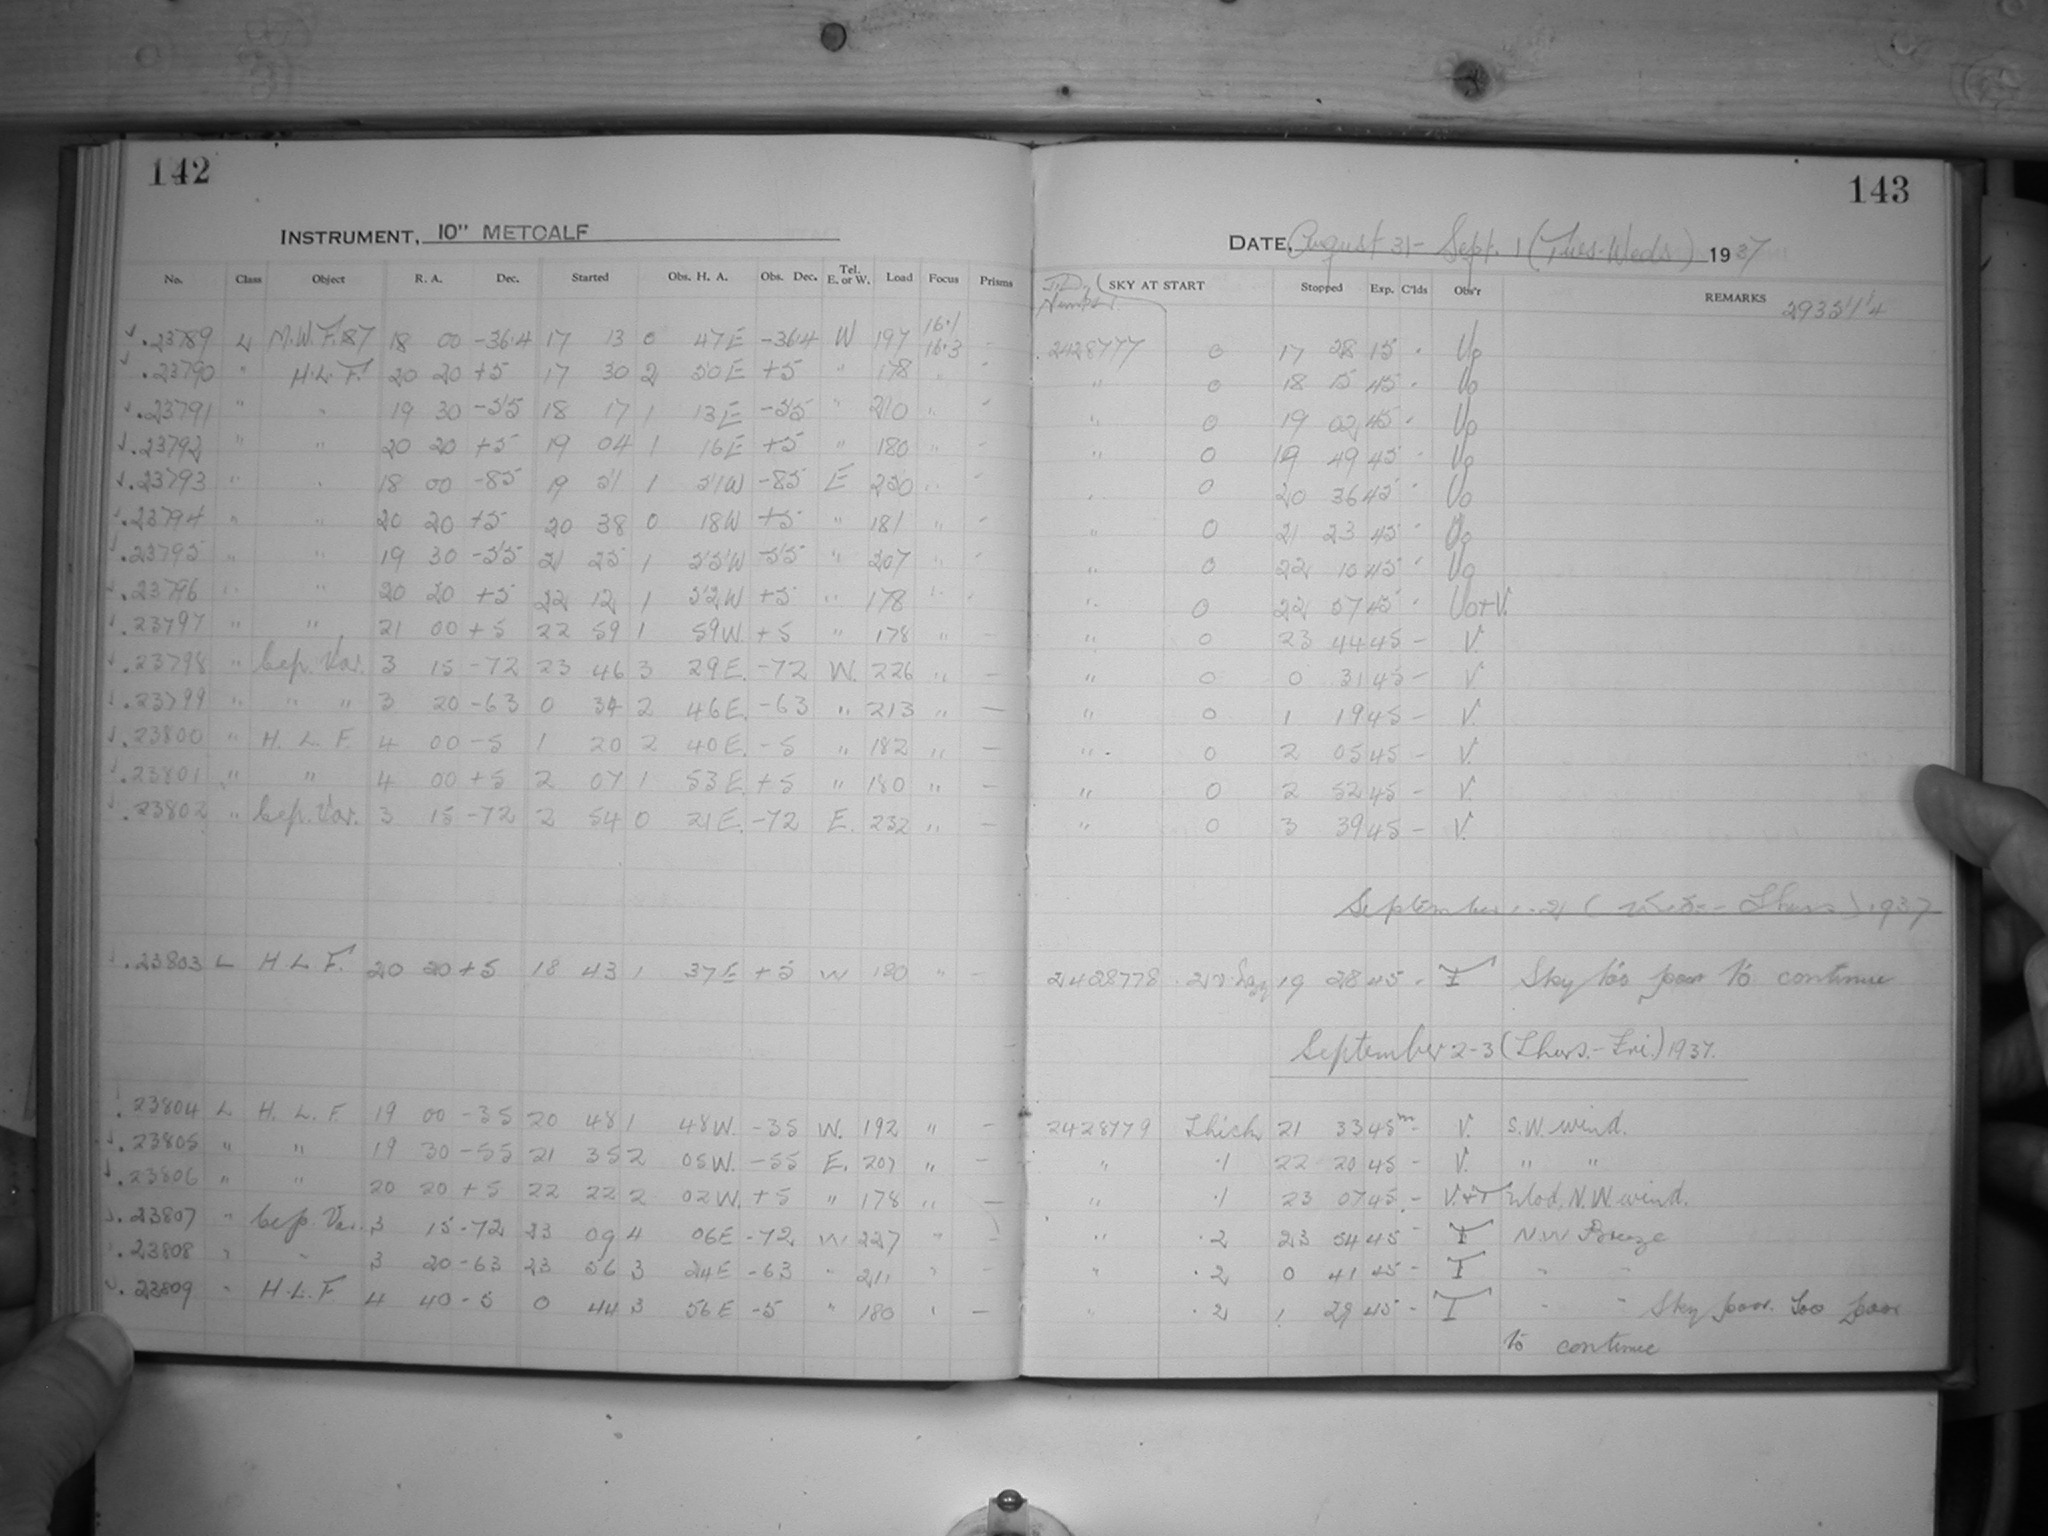 142
143
INSTRUMENT, 10" METCALF
DATE, August 31 - Sept. 1 (Tues-Weds) 1937
No. Class Object R. A. Dec. Started Obs. H. A. Obs. Dec. Tel. E. or W. Load Focus Prisms J.D. Number SKY AT START Stopped Exp. C'lds Obs'r REMARKS
.23789 L M.W.F. 187 18 00 -36.4 17 13 0 47E -36.4 W 197 16.1 16.3 - 2428777 0 17 28 15 - Uo
.23790 " H.L.F. 20 20 +5 17 30 2 50E +5 " 178 " - " 0 18 15 45 - Uo
.23791 " " 19 30 -55 18 17 1 13E -55 " 210 " - " 0 19 02 45 - Uo
.23792 " " 20 20 +5 19 04 1 16E +5 " 180 " - " 0 19 49 45 - Uo
.23793 " " 18 00 -85 19 51 1 51W -85 E 230 " - " 0 20 36 45 - Uo
.23794 " " 20 20 +5 20 38 0 18W +5 " 181 " - " 0 21 23 45 - Uo
.23795 " " 19 30 -55 21 25 1 55W -55 " 207 " - " 0 22 10 45 - Uo
.23796 " " 20 20 +5 22 12 1 52W +5 " 178 " - " 0 22 57 45 - Uo+V.
.23797 " " 21 00 +5 22 59 1 59W. +5 " 178 " - " 0 23 44 45 - V.
.23798 " Cep. Var. 3 15 -72 23 46 3 29E. -72 W. 226 " - " 0 0 31 45 - V.
.23799 " " " 3 20 -63 0 34 2 46E. -63 " 213 " - " 0 1 19 45 - V.
.23800 " H. L. F. 4 00 -5 1 20 2 40E. -5 " 182 " - " 0 2 05 45 - V.
.23801 " " 4 00 +5 2 07 1 53E. +5 " 180 " - " 0 2 52 45 - V.
.23802 " Cep. Var. 3 15 -72 2 54 0 21E. -72 E. 232 " - " 0 3 39 45 - V.
September 1-2 ( - Thurs) 1937
.23803 L H L F. 20 20 +5 18 43 1 37E +5 W 180 " - 2428778 19 28 45 - T Sky too poor to continue
September 2-3 (Thurs.-Fri.) 1937.
.23804 L H. L. F. 19 00 -35 20 48 1 48W. -35 W. 192 " - 2428779 Thick 21 33 45m - V. S.W. wind.
.23805 " " 19 30 -55 21 35 2 05W. -55 E. 207 " - " .1 22 20 45 - V. " "
.23806 " " 20 20 +5 22 22 2 02W. +5 " 178 " - " .1 23 07 45 - V.+T Mod. N.W. wind.
.23807 " Cep. Var. 3 15 -72 23 09 4 06E -72 W 227 " - " .2 23 54 45 - T N.W Breeze
.23808 " " 3 20 -63 23 56 3 24E -63 " 211 " - " .2 0 41 45 - T " "
.23809 " H.L.F. 4 40 -5 0 44 3 56E -5 " 180 " - " .2 1 29 45 - T " " Sky poor. Too poor
to continue